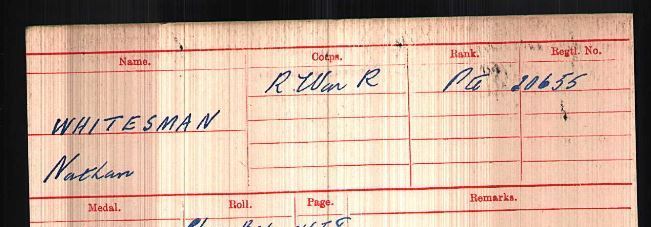 Name. Corps. Rank. Regtl. No.
R. War R Pte 20655
WHITESMAN
Nathan
Medal. Roll. Page. Remarks.